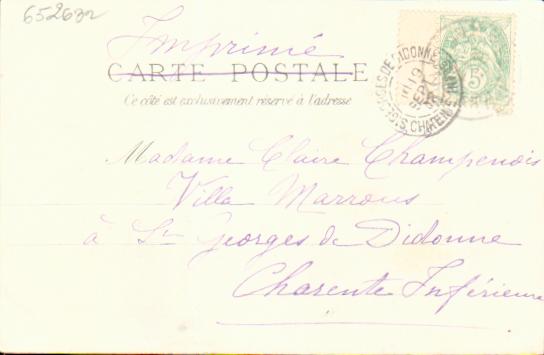 652632
Imprimé
CARTE POSTALE
Ce côté est exclusivement réservé à l'adresse
ST GEORGES DE DIDONNE
CH. INF
5
Madame Claire Champenois
Villa Marrous
à St Georges de Didonne
Charente Inférieure